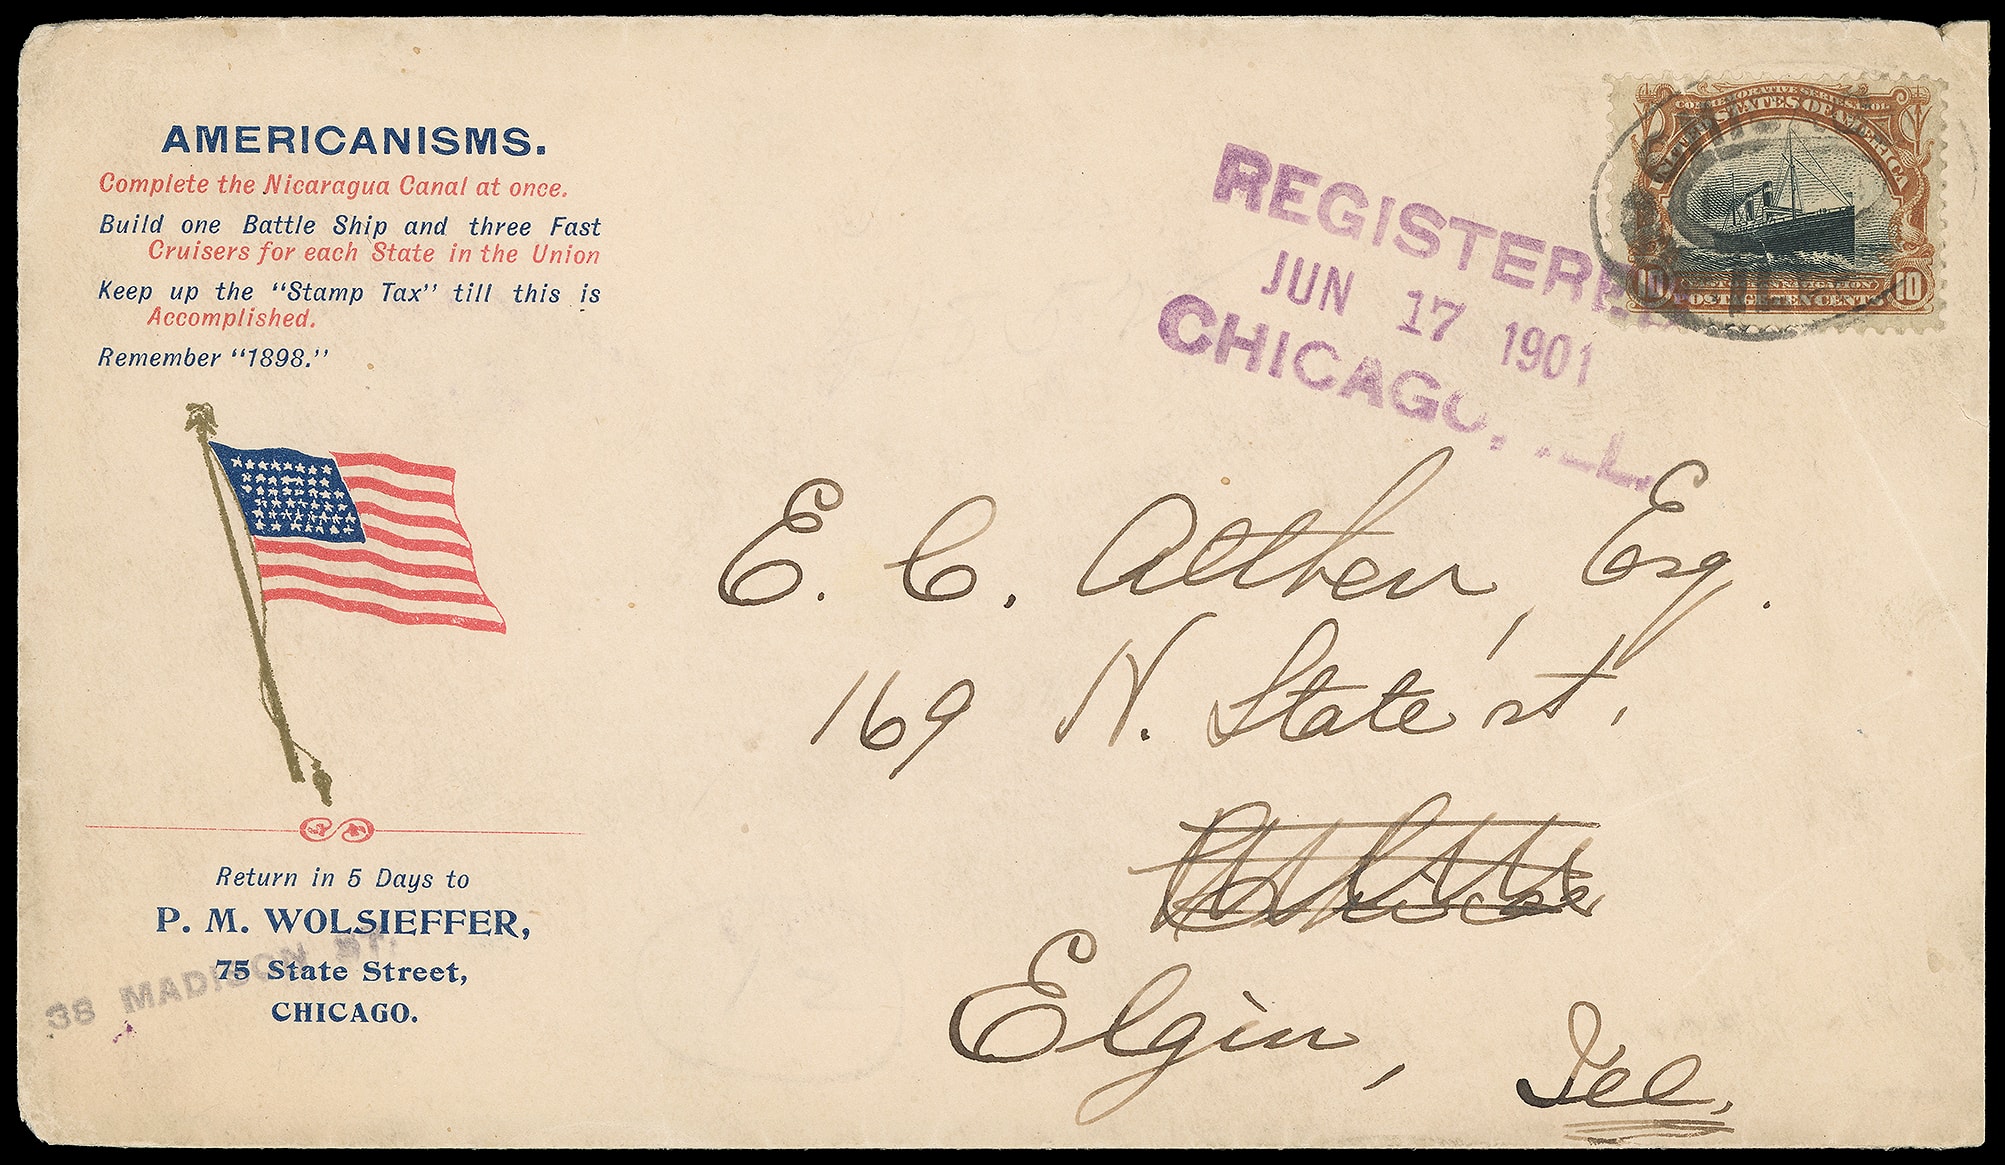 AMERICANISMS.
Complete the Nicaragua Canal at once.
Build one Battle Ship and three Fast
Cruisers for each State in the Union
Keep up the “Stamp Tax” till this is
Accomplished.
Remember “1898.”
REGISTERED
JUN 17 1901
CHICAGO, ILL.
COMMEMORATIVE SERIES 1901
UNITED STATES OF AMERICA
10 10
POSTAGE TEN CENTS
E. C. Althen, Esq.
169 N. State st.
Elgin, Ill.
Return in 5 Days to
P. M. WOLSIEFFER,
75 State Street,
CHICAGO.
38 MADISON ST.